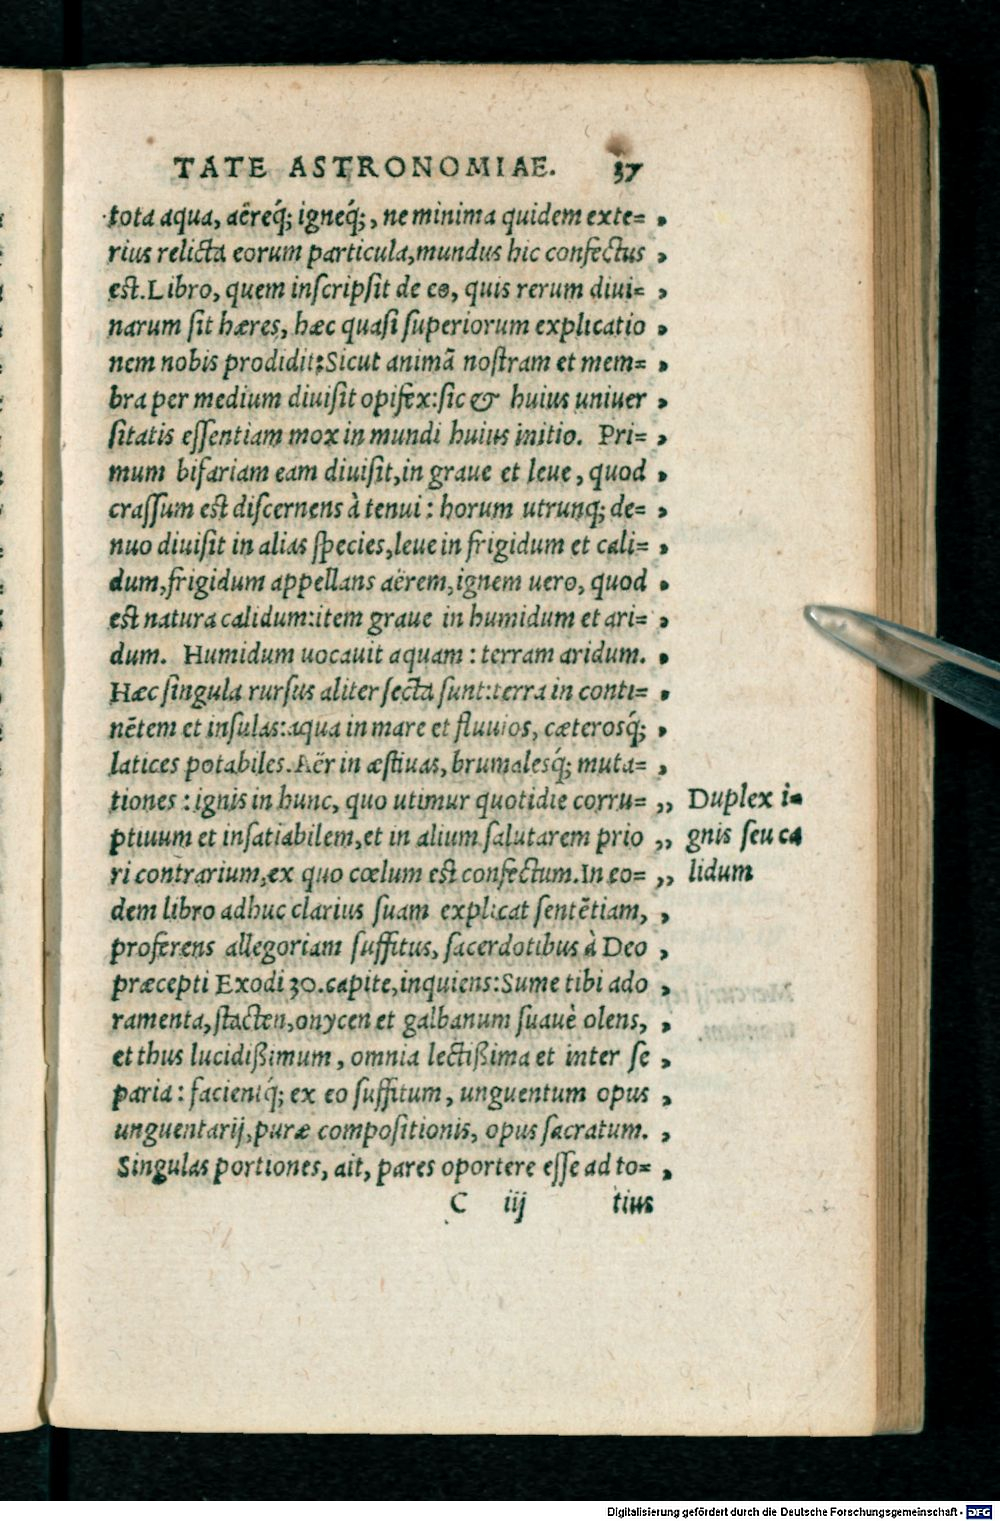 TATE ASTRONOMIAE. 37
tota aqua, aëreq́; igneq́;, ne minima quidem exte= ,
rius relicta eorum particula, mundus hic confectus ,
est. Libro, quem inscripsit de eo, quis rerum diui= ,
narum sit hæres, hæc quasi superiorum explicatio ,
nem nobis prodidit: Sicut animā nostram et mem= ,
bra per medium diuisit opifex: sic & huius uniuer ,
sitatis essentiam mox in mundi huius initio. Pri= ,
mum bifariam eam diuisit, in graue et leue, quod ,
crassum est discernens à tenui: horum utrunq; de= ,
nuo diuisit in alias species, leue in frigidum et cali= ,
dum, frigidum appellans aërem, ignem uero, quod ,
est natura calidum: item graue in humidum et ari= ,
dum. Humidum uocauit aquam: terram aridum. ,
Hæc singula rursus aliter secta sunt: terra in conti= ,
nētem et insulas: aqua in mare et fluuios, cæterosq́; ,
latices potabiles. Aër in æstiuas, brumalesq́; muta= ,
tiones: ignis in hunc, quo utimur quotidie corru= ,, Duplex i=
ptiuum et insatiabilem, et in alium salutarem prio ,, gnis seu ca
ri contrarium, ex quo cœlum est confectum. In eo= ,, lidum
dem libro adhuc clarius suam explicat sentētiam, ,
proferens allegoriam suffitus, sacerdotibus à Deo ,
præcepti Exodi 30. capite, inquiens: Sume tibi ado ,
ramenta, stacten, onycen et galbanum suauè olens, ,
et thus lucidißimum, omnia lectißima et inter se ,
paria: facientq́; ex eo suffitum, unguentum opus ,
unguentarij, puræ compositionis, opus sacratum. ,
Singulas portiones, ait, pares oportere esse ad to= ,
C iij tius
Digitalisierung gefördert durch die Deutsche Forschungsgemeinschaft - DFG